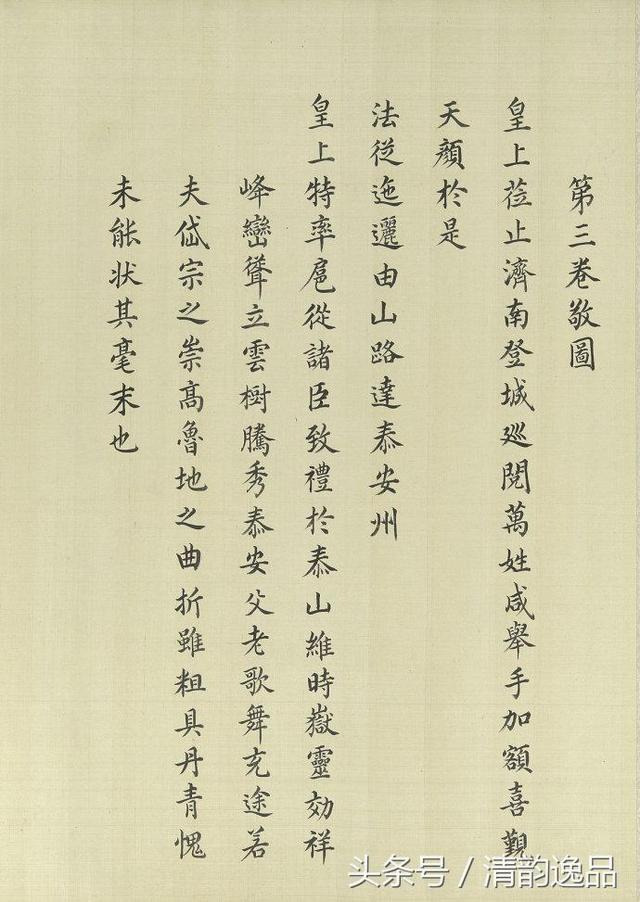 第三卷敬圖
皇上莅止濟南登城廵閱萬姓咸舉手加額喜覲
天顏於是
法従迤邐由山路達泰安州
皇上特率扈從諸臣致禮於泰山維時嶽靈効祥
峰巒聳立雲樹騰秀泰安父老歌舞充途若
夫岱宗之崇高魯地之曲折雖粗具丹青愧
未能状其毫末也
头条号 / 清韵逸品